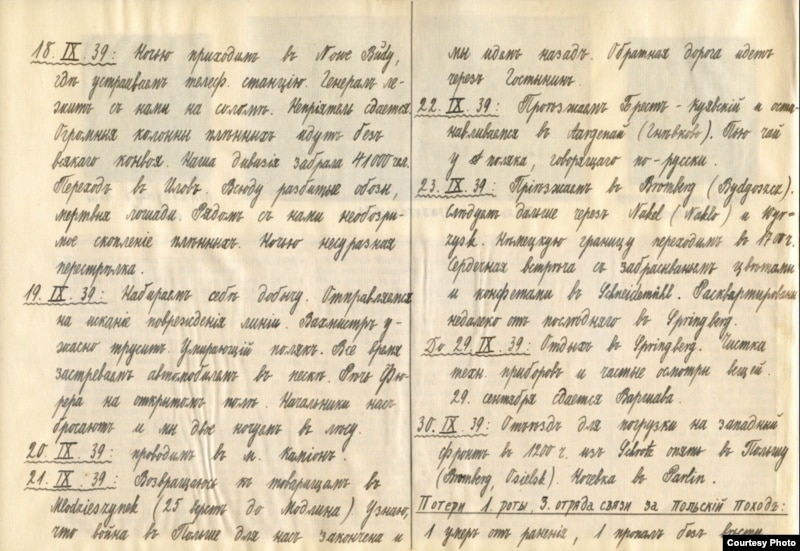 18. IX. 39: Ночью приходимъ въ Nowe Budy,
гдѣ устраиваемъ телеф. станцію. Генералъ ле-
житъ съ нами на соломѣ. Непріятель сдается.
Огромныя колонны плѣнныхъ идутъ безъ
всякаго конвоя. Наша дивизія забрала 41000 чел.
Переходъ въ Иловъ. Всюду разбитые обозы,
мертвыя лошади. Рядомъ съ нами необозри-
мое скопленіе плѣнныхъ. Ночью несуразная
перестрѣлка.
19. IX. 39: Набираемъ себѣ добычу. Отправляемся
на исканіе поврежденія линіи. Вахмистръ у-
жасно труситъ. Умирающій полякъ. Все время
застреваемъ автомобилемъ въ пескѣ. Рѣчь Фю-
рера на открытомъ полѣ. Начальники насъ
бросаютъ и мы двое ночуемъ въ лѣсу.
20. IX. 39: проводимъ въ м. Кампіонъ.
21. IX. 39: Возвращаюсь къ товарищамъ въ
Młodzieszynek (25 верстъ до Модлина) Узнаю,
что война въ Польшѣ для насъ закончена и
мы идемъ назадъ. Обратная дорога идетъ
черезъ Гостынинъ.
22. IX. 39: Проѣзжаемъ Брестъ-куявскій и оста-
навливаемся въ (Гнѣвково). Пью чай
у поляка, говорящаго по-русски.
23. IX. 39: Пріѣзжаемъ въ Bromberg (Bydgoszcz).
Слѣдуемъ дальше черезъ Nakel (Nakło) и Wyr-
zysk. Нѣмецкую границу переходимъ въ 1700 ч.
Сердечная встрѣча съ забрасываньемъ цвѣтами
и конфетами въ Schneidemühl. Расквартированы
недалеко отъ послѣдняго въ Springberg.
До 29. IX. 39: Отдыхъ въ Springberg. Чистка
техн. приборовъ и частые осмотры вещей.
29. сентября сдается Варшава.
30. IX. 39: Отъѣздъ для погрузки на западный
фронтъ въ 1200 ч. изъ опять въ Польшу
(Bromberg, Osielsk). Ночевка въ Parlin.
Потери 1. роты, 3. отряда связи за польскій походъ:
1 умеръ отъ раненія, 1 пропалъ безъ вѣсти
Courtesy Photo